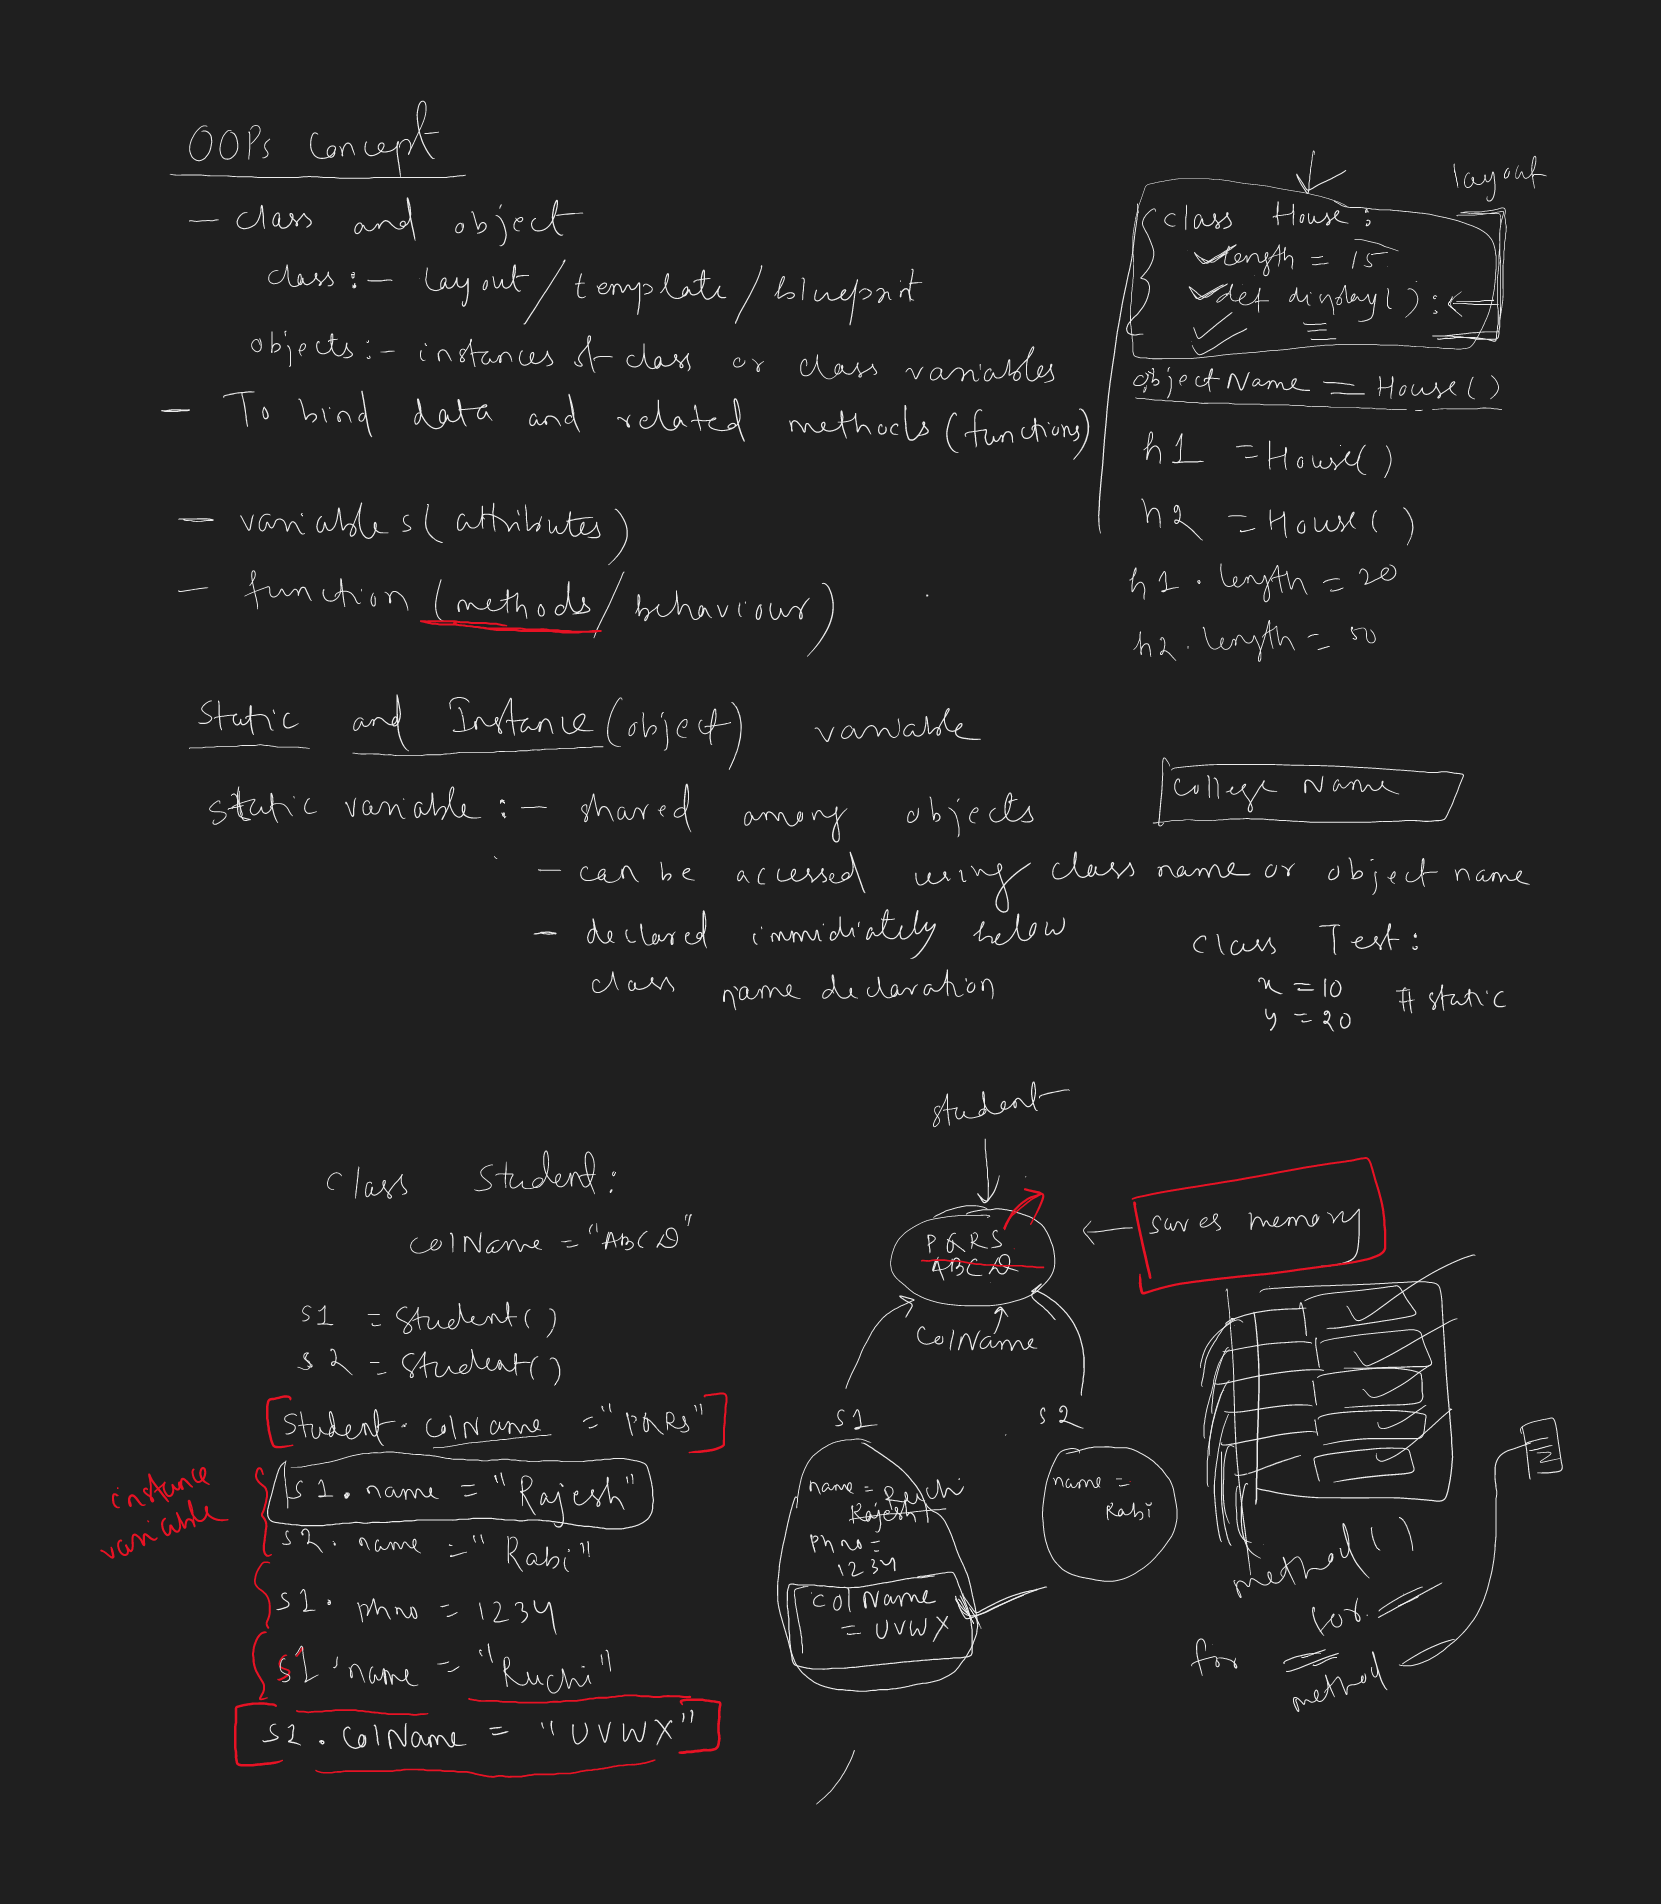 OOPs Concept
- class and object
class :- layout / template / blueprint
objects :- instances of class or class variables
- To bind data and related methods (functions)
- variables (attributes)
- function (methods / behaviour)
layout
class House :
length = 15
def display() :
objectName = House()
h1 = House()
h2 = House()
h1 . length = 20
h2 . length = 50
Static and Instance (object) variable
static variable :- shared among objects
College Name
- can be accessed using class name or object name
- declared immidiately below
class name declaration
class Test :
x = 10
y = 20
# static
class Student :
colName = "ABCD"
s1 = Student()
s2 = Student()
Student . colName = "PQRS"
instance
variable
s1 . name = "Rajesh"
s2 . name = "Rabi"
s1 . phno = 1234
s1 . name = "Ruchi"
s1 . colName = "UVWX"
student
PQRS
ABCD
ColName
saves memory
s1
s2
name = Ruchi
Rajesh
phno =
1234
colName
= UVWX
name =
Rabi
method()
for
for
method